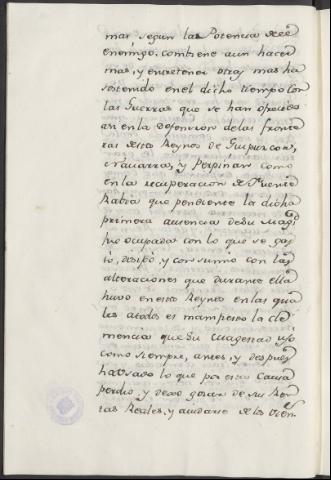 mas segun las Potencia del
enemigo. combiene aun hacer
mas, y entretener otras mas ha
sostenido en el dicho tiempo con
las Guerras que se han ofrecido
asi en la Defension de las fronte
ras de los Reynos de Guipuzcoa,
y Navarra, y Perpiñan como
en la recuperacion de Fuente
Rabia que pendiente la dicha
primera ausencia de Su Magd
fue ocupada con lo que se gas
tó, disipó, y consumio con las
alteraciones que durante ella
huvo en estos Reynos en las qua
les a todos es manifiesto la cle
mencia que Su Magestad usó
como siempre, antes, y despues
ha usado lo que por esta causa
perdio, y dejo gozar de sus Ren
tas Reales, y ayudarse de los Vien